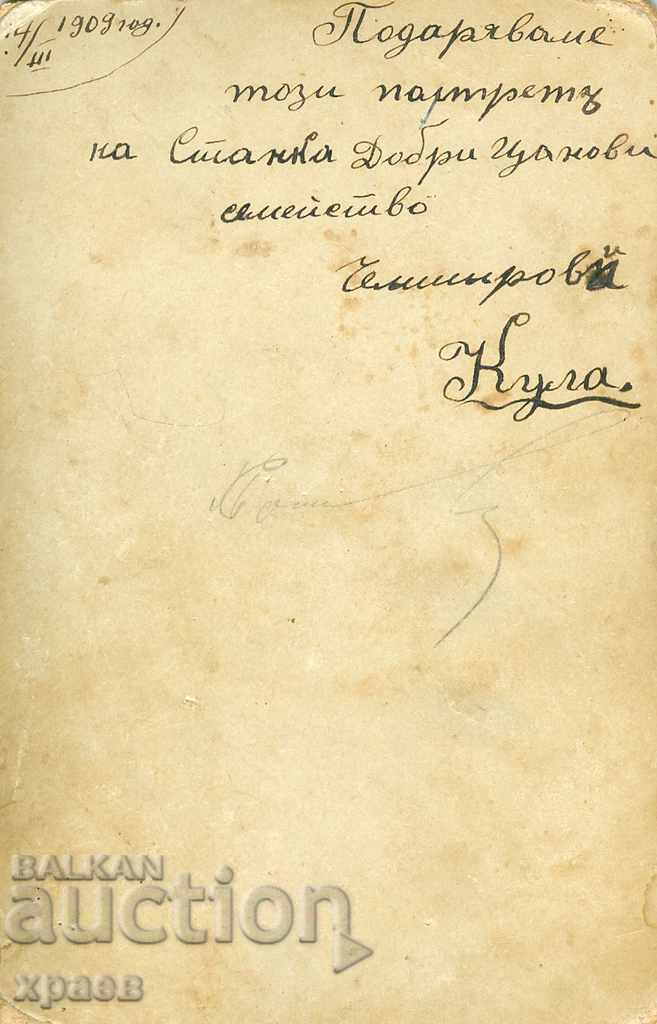 4/III 1909 год.
Подаряваме
този партретъ
на Станка Добри Цанови
семейство
Чемширови
Кула.
BALKAN
auction
храев